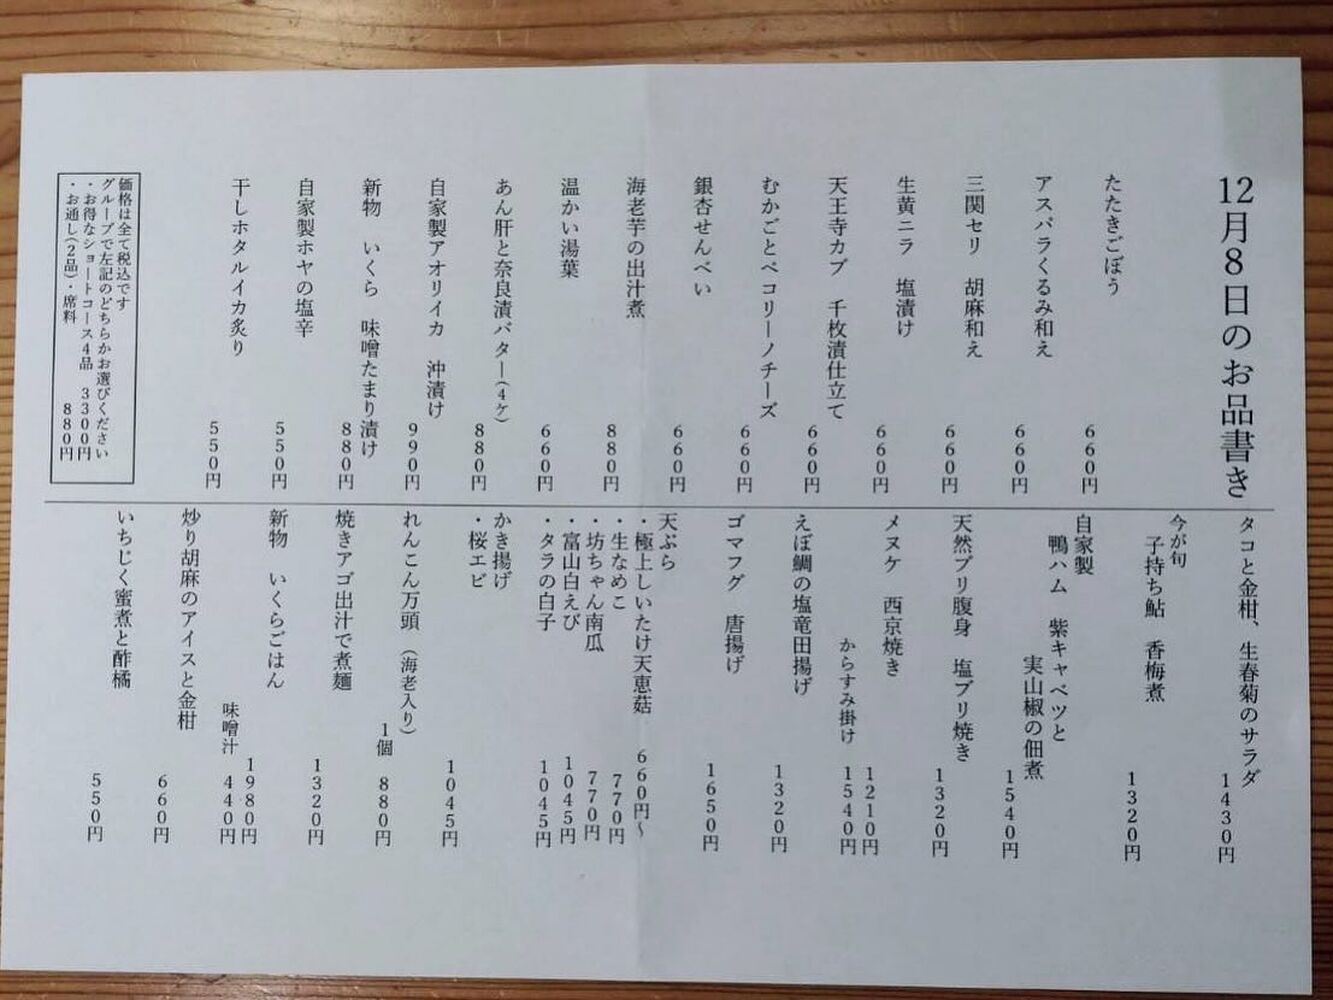 12月8日のお品書き
たたきごぼう
660円
アスパラくるみ和え
660円
三関セリ　胡麻和え
660円
生黄ニラ　塩漬け
660円
天王寺カブ　千枚漬仕立て
660円
むかごとペコリーノチーズ
660円
銀杏せんべい
660円
海老芋の出汁煮
880円
温かい湯葉
660円
あん肝と奈良漬バター(4ケ)
880円
自家製アオリイカ　沖漬け
990円
新物　いくら　味噌たまり漬け
880円
自家製ホヤの塩辛
550円
干しホタルイカ炙り
550円
価格は全て税込です
グループで左記のどちらかお選びください
・お得なショートコース4品　3300円
・お通し(2品)・席料　880円
タコと金柑、生春菊のサラダ
1430円
今が旬
子持ち鮎　香梅煮
1320円
自家製
鴨ハム　紫キャベツと
実山椒の佃煮
1540円
天然ブリ腹身　塩ブリ焼き
1320円
メヌケ　西京焼き
1210円
からすみ掛け　1540円
えぼ鯛の塩竜田揚げ
1320円
ゴマフグ　唐揚げ
1650円
天ぷら
・極上しいたけ天恵菇　660円〜
・生なめこ　770円
・坊ちゃん南瓜　770円
・富山白えび　1045円
・タラの白子　1045円
かき揚げ
・桜エビ
1045円
れんこん万頭（海老入り）
1個　880円
焼きアゴ出汁で煮麺
1320円
新物　いくらごはん
1980円
味噌汁　440円
炒り胡麻のアイスと金柑
660円
いちじく蜜煮と酢橘
550円